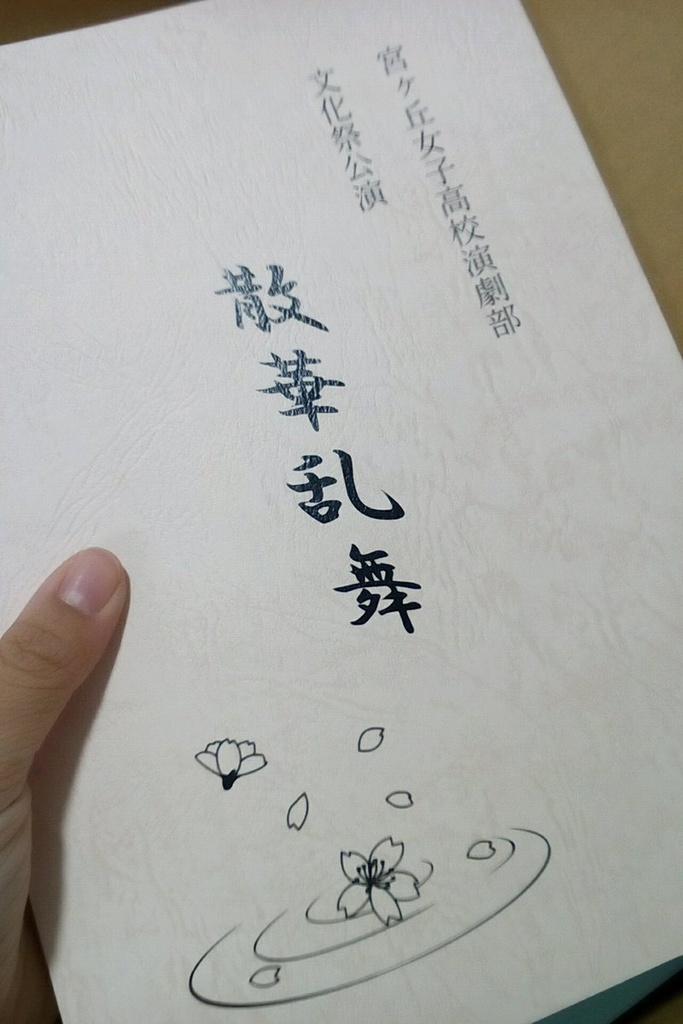 宮ヶ丘女子高校演劇部
文化祭公演
散華乱舞